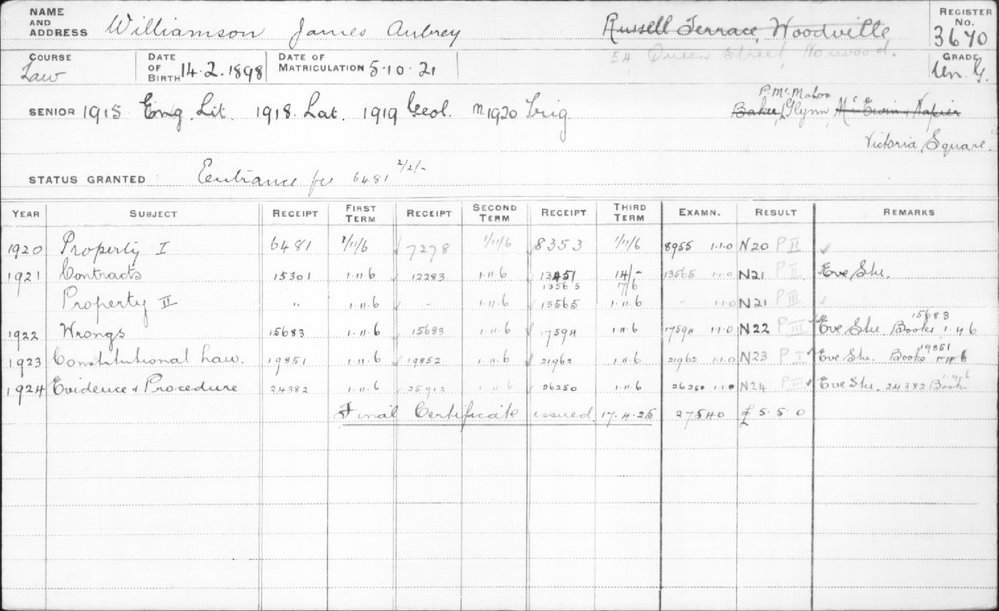 NAME AND ADDRESS Williamson James Aubrey Russell Terrace, Woodville REGISTER No. 3670
54 Queen Street, Norwood.
COURSE Law DATE OF BIRTH 14.2.1898 DATE OF MATRICULATION 5.10.21 GRADE Un. G.
SENIOR 1915 Eng. Lit. 1918. Lat. 1919 Geol. M.1920 Trig P. McMahon
Baker, Glynn, McEwin & Napier
Victoria Square.
STATUS GRANTED Entrance fee 6481 2/2/-
YEAR SUBJECT RECEIPT FIRST TERM RECEIPT SECOND TERM RECEIPT THIRD TERM EXAMN. RESULT REMARKS
1920 Property I 6481 1/11/6 7278 1/11/6 8353 1/11/6 8955 1.1.0 N20 P II
1921 Contracts 15301 1.11.6 12283 1.11.6 13451 14/- 13565 1.1.0 N21 P II Eve Stu.
13565 7/6
Property II " 1.11.6 - 1.11.6 13565 1.11.6 " 1.1.0 N21 P III
1922 Wrongs 15683 1.11.6 15683 1.11.6 17594 1.11.6 17594 1.1.0 N22 P III Eve Stu. Books 15683 1.4.6
1923 Constitutional Law. 19851 1.11.6 19852 1.11.6 21962 1.11.6 21962 1.1.0 N23 P I Eve Stu. Books 19851
1924 Evidence & Procedure 24382 1.11.6 25912 1.11.6 26250 1.11.6 26250 1.1.0 N24 P Eve Stu. 24382 Book
Final Certificate issued 17.4.25 27540 £5.5.0